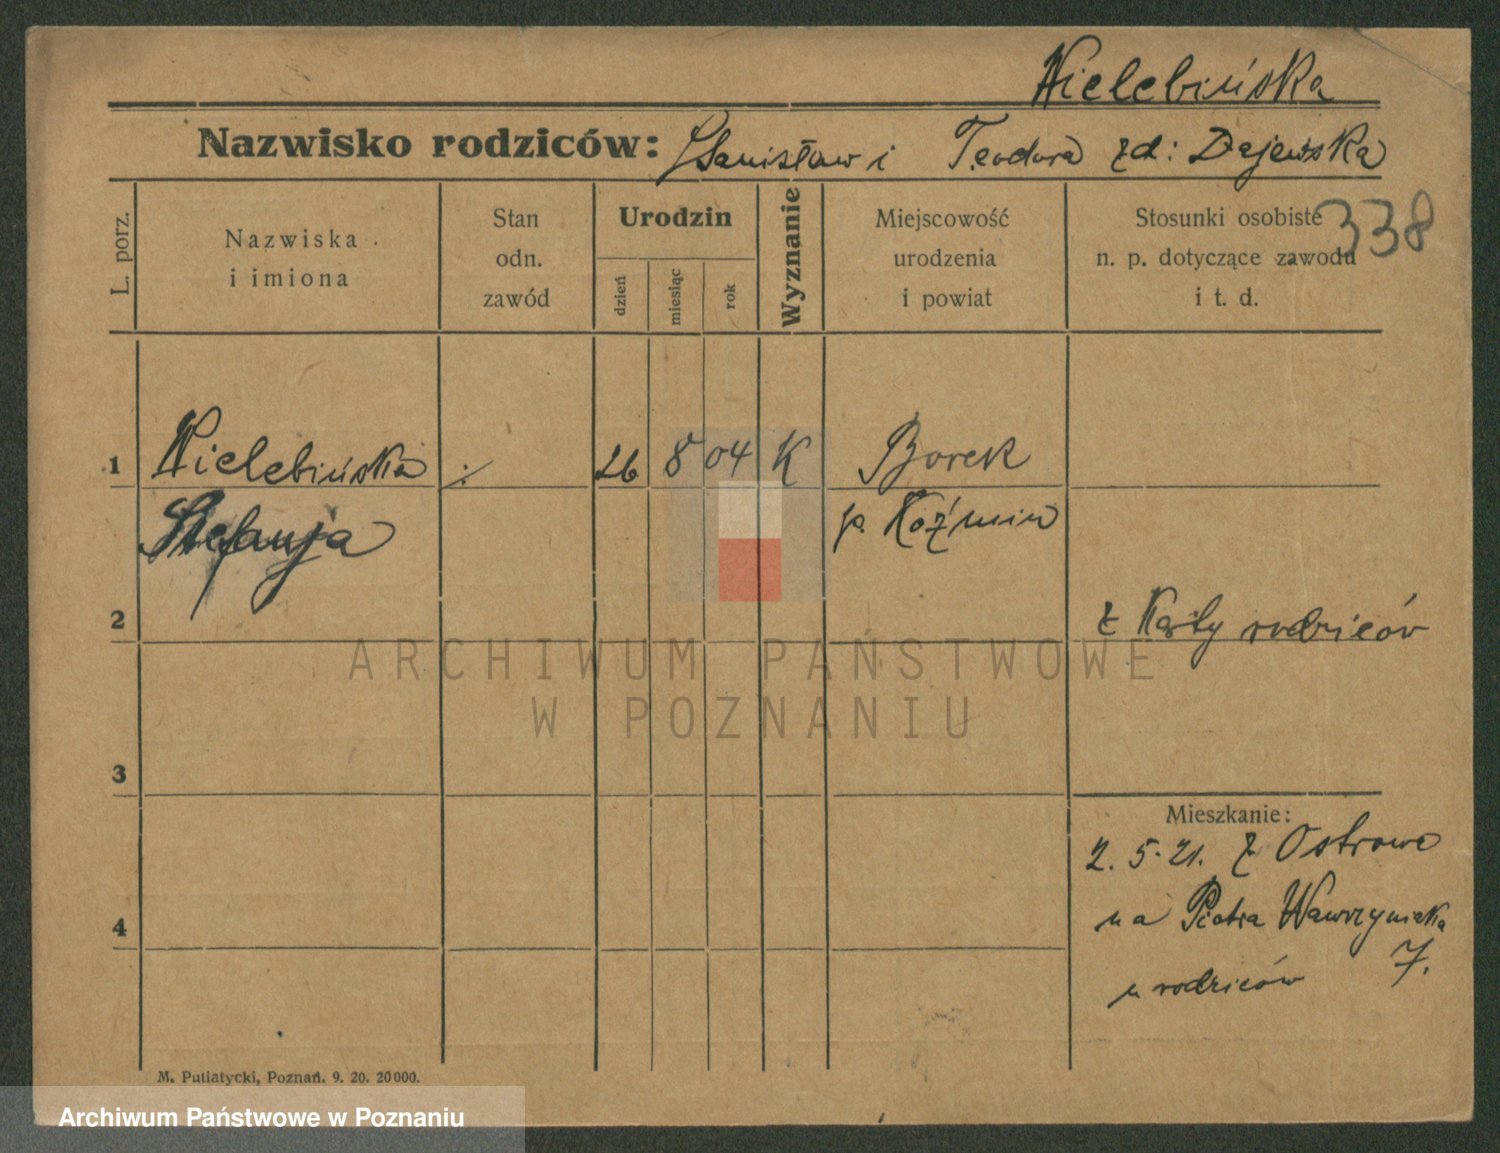 Wielebińska
Nazwisko rodziców: Stanisław i Teodora zd: Dajewska
L. porz.
Nazwiska
i imiona
Stan
odn.
zawód
Urodzin
dzień
miesiąc
rok
Wyznanie
Miejscowość
urodzenia
i powiat
Stosunki osobiste
n. p. dotyczące zawodu
i t. d.
338
1 Wielebińska ./. 26 8 04 K Borek
Stefanja p. Koźmin
2 z Karty rodziców
3
Mieszkanie:
2. 5. 21. z Ostrowa
na Piotra Wawrzyniaka
4
7.
u rodziców
M. Putiatycki, Poznań. 9. 20. 20000.
ARCHIWUM PAŃSTWOWE
W POZNANIU
Archiwum Państwowe w Poznaniu